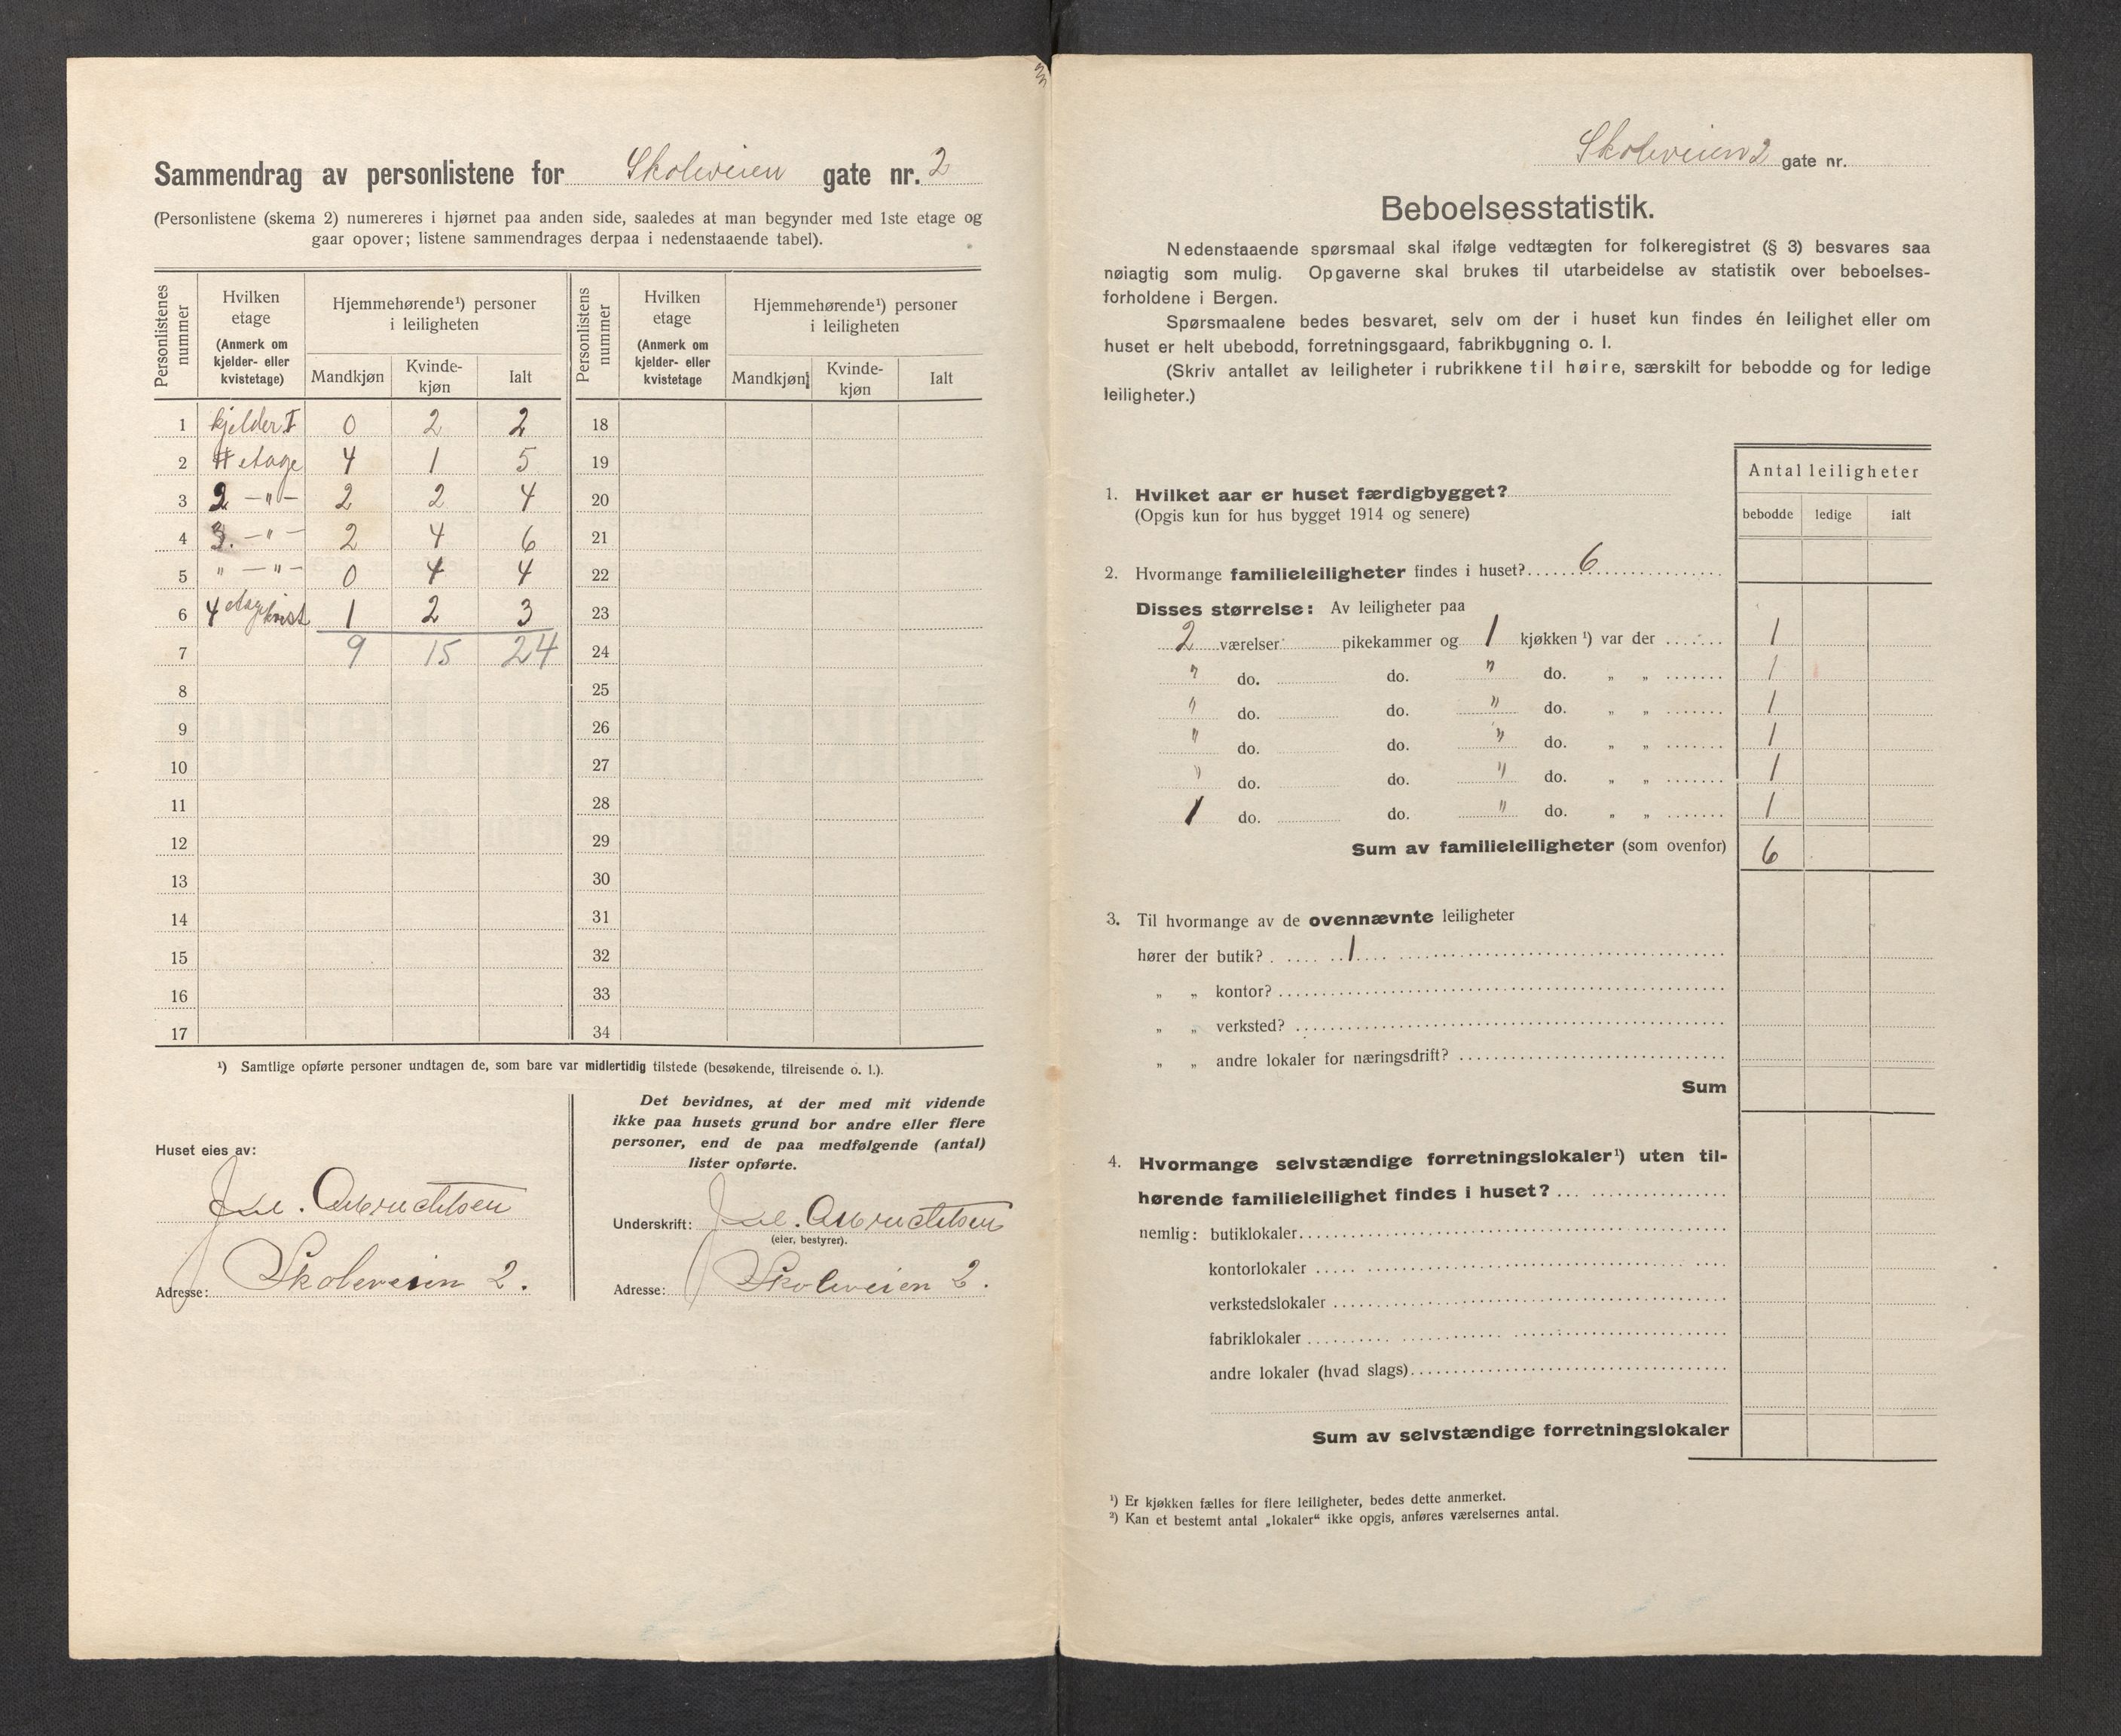 Sammendrag av personlistene for Skoleveien gate nr. 2
(Personlistene (skema 2) numereres i hjørnet paa anden side, saaledes at man begynder med 1ste etage og
gaar opover; listene sammendrages derpaa i nedenstaaende tabel).
Personlistenes nummer | Hvilken etage (Anmerk om kjelder- eller kvistetage) | Hjemmehørende¹) personer i leiligheten | Personlistens nummer | Hvilken etage (Anmerk om kjelder- eller kvistetage | Hjemmehørende¹) personer i leiligheten
Mandkjøn | Kvinde-kjøn | Ialt | Mandkjøn | Kvinde-kjøn | Ialt
1 kjelder I 0 2 2 18
2 etage 4 1 5 19
3 2 — " — 2 2 4 20
4 3. — " — 2 4 6 21
5 " — " — 0 4 4 22
6 4 etage kvist 1 2 3 23
7 9 15 24 24
8 25
9 26
10 27
11 28
12 29
13 30
14 31
15 32
16 33
17 34
¹) Samtlige opførte personer undtagen de, som bare var midlertidig tilstede (besøkende, tilreisende o. l.).
Huset eies av:
Adresse: Skoleveien 2.
Det bevidnes, at der med mit vidende
ikke paa husets grund bor andre eller flere
personer, end de paa medfølgende (antal)
lister opførte.
Underskrift:
(eier, bestyrer).
Adresse: Skoleveien 2.
Skoleveien 2 gate nr.
Beboelsesstatistik.
Nedenstaaende spørsmaal skal ifølge vedtægten for folkeregistret (§ 3) besvares saa
nøiagtig som mulig. Opgaverne skal brukes til utarbeidelse av statistik over beboelses-
forholdene i Bergen.
Spørsmaalene bedes besvaret, selv om der i huset kun findes én leilighet eller om
huset er helt ubebodd, forretningsgaard, fabrikbygning o. l.
(Skriv antallet av leiligheter i rubrikkene til høire, særskilt for bebodde og for ledige
leiligheter.)
Antal leiligheter
bebodde | ledige | ialt
1. Hvilket aar er huset færdigbygget?
(Opgis kun for hus bygget 1914 og senere)
2. Hvormange familieleiligheter findes i huset? 6
Disses størrelse: Av leiligheter paa
2 værelser pikekammer og 1 kjøkken ¹) var der 1
" do. do. " do. „ „ 1
" do. do. " do. „ „ 1
" do. do. " do. „ „ 1
" do. do. " do. „ „ 1
1 do. do. " do. „ „ 1
Sum av familieleiligheter (som ovenfor) 6
3. Til hvormange av de ovennævnte leiligheter
hører der butik? 1
„ „ kontor?
„ „ verksted?
„ „ andre lokaler for næringsdrift?
Sum
4. Hvormange selvstændige forretningslokaler¹) uten til-
hørende familieleilighet findes i huset?
nemlig: butiklokaler
kontorlokaler
verkstedslokaler
fabriklokaler
andre lokaler (hvad slags)
Sum av selvstændige forretningslokaler
¹) Er kjøkken fælles for flere leiligheter, bedes dette anmerket.
²) Kan et bestemt antal „lokaler“ ikke opgis, anføres værelsernes antal.